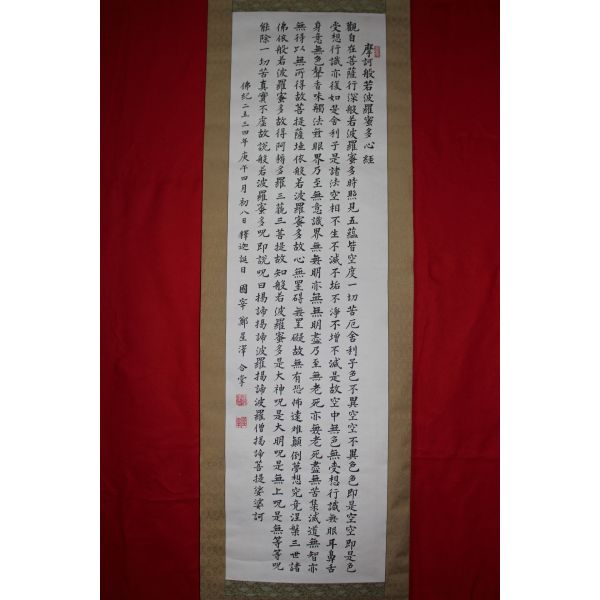 摩訶般若波羅蜜多心經
觀自在菩薩行深般若波羅蜜多時照見五蘊皆空度一切苦厄舍利子色不異空空不異色色即是空空即是色
受想行識亦復如是舍利子是諸法空相不生不滅不垢不淨不增不減是故空中無色無受想行識無眼耳鼻舌
身意無色聲香味觸法無眼界乃至無意識界無無明亦無無明盡乃至無老死亦無老死盡無苦集滅道無智亦
無得以無所得故菩提薩埵依般若波羅蜜多故心無罣碍無罣礙故無有恐怖遠離顛倒夢想究竟涅槃三世諸
佛依般若波羅蜜多故得阿耨多羅三藐三菩提故知般若波羅蜜多是大神呪是大明呪是無上呪是無等等呪
能除一切苦真實不虛故說般若波羅蜜多呪即說呪曰揭諦揭諦波羅揭諦波羅僧揭諦菩提娑婆訶
佛紀二五三四年庚午四月初八日釋迦誕日 國宰 鄭星澤 合掌